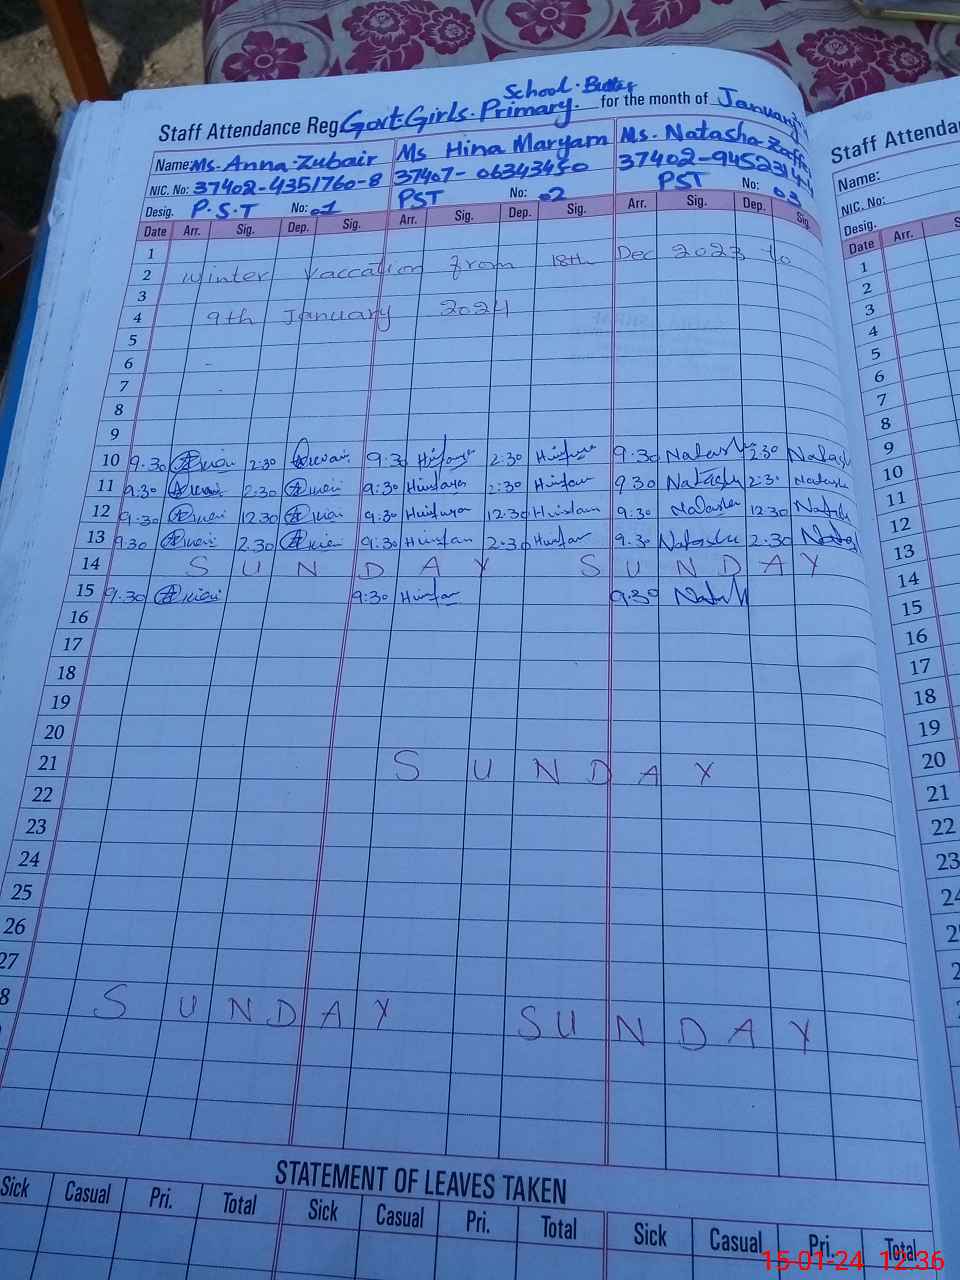 School.
Staff Attendance Reg Govt Girls. Primary. for the month of January
Name: Ms. Anna Zubair Ms Hina Maryam Ms. Natasha
NIC. No: 37402-4351760-8 37407-06343450 37402-
Desig. P.S.T No: 01 PST No: 02 PST No: 03
Date Arr. Sig. Dep. Sig. Arr. Sig. Dep. Sig. Arr. Sig. Dep. Sig.
1
2 Winter Vaccation from 18th Dec 2023 to
3
4 9th January 2024
5
6
7
8
9
10 9.30 2:30 9.30 2:30 9.30 2.30
11 9:30 2:30 9:30 2:30 9.30 2:30
12 9:30 12.30 9:30 12:30 9:30 12:30
13 9:30 2.30 9:30 2:30 9:30 2:30
14 SUNDAY SUNDAY
15 9:30 9:30 9:30
16
17
18
19
20
21 SUNDAY
22
23
24
25
26
27
8 SUNDAY SUNDAY
STATEMENT OF LEAVES TAKEN
Sick Casual Pri. Total Sick Casual Pri. Total Sick Casual Pri. Total
Staff Attenda
Name:
NIC. No:
Desig.
Date Arr. S
1
2
3
4
5
6
7
8
9
10
11
12
13
14
15
16
17
18
19
20
21
22
23
24
2
2
2
15-01-24 12:36